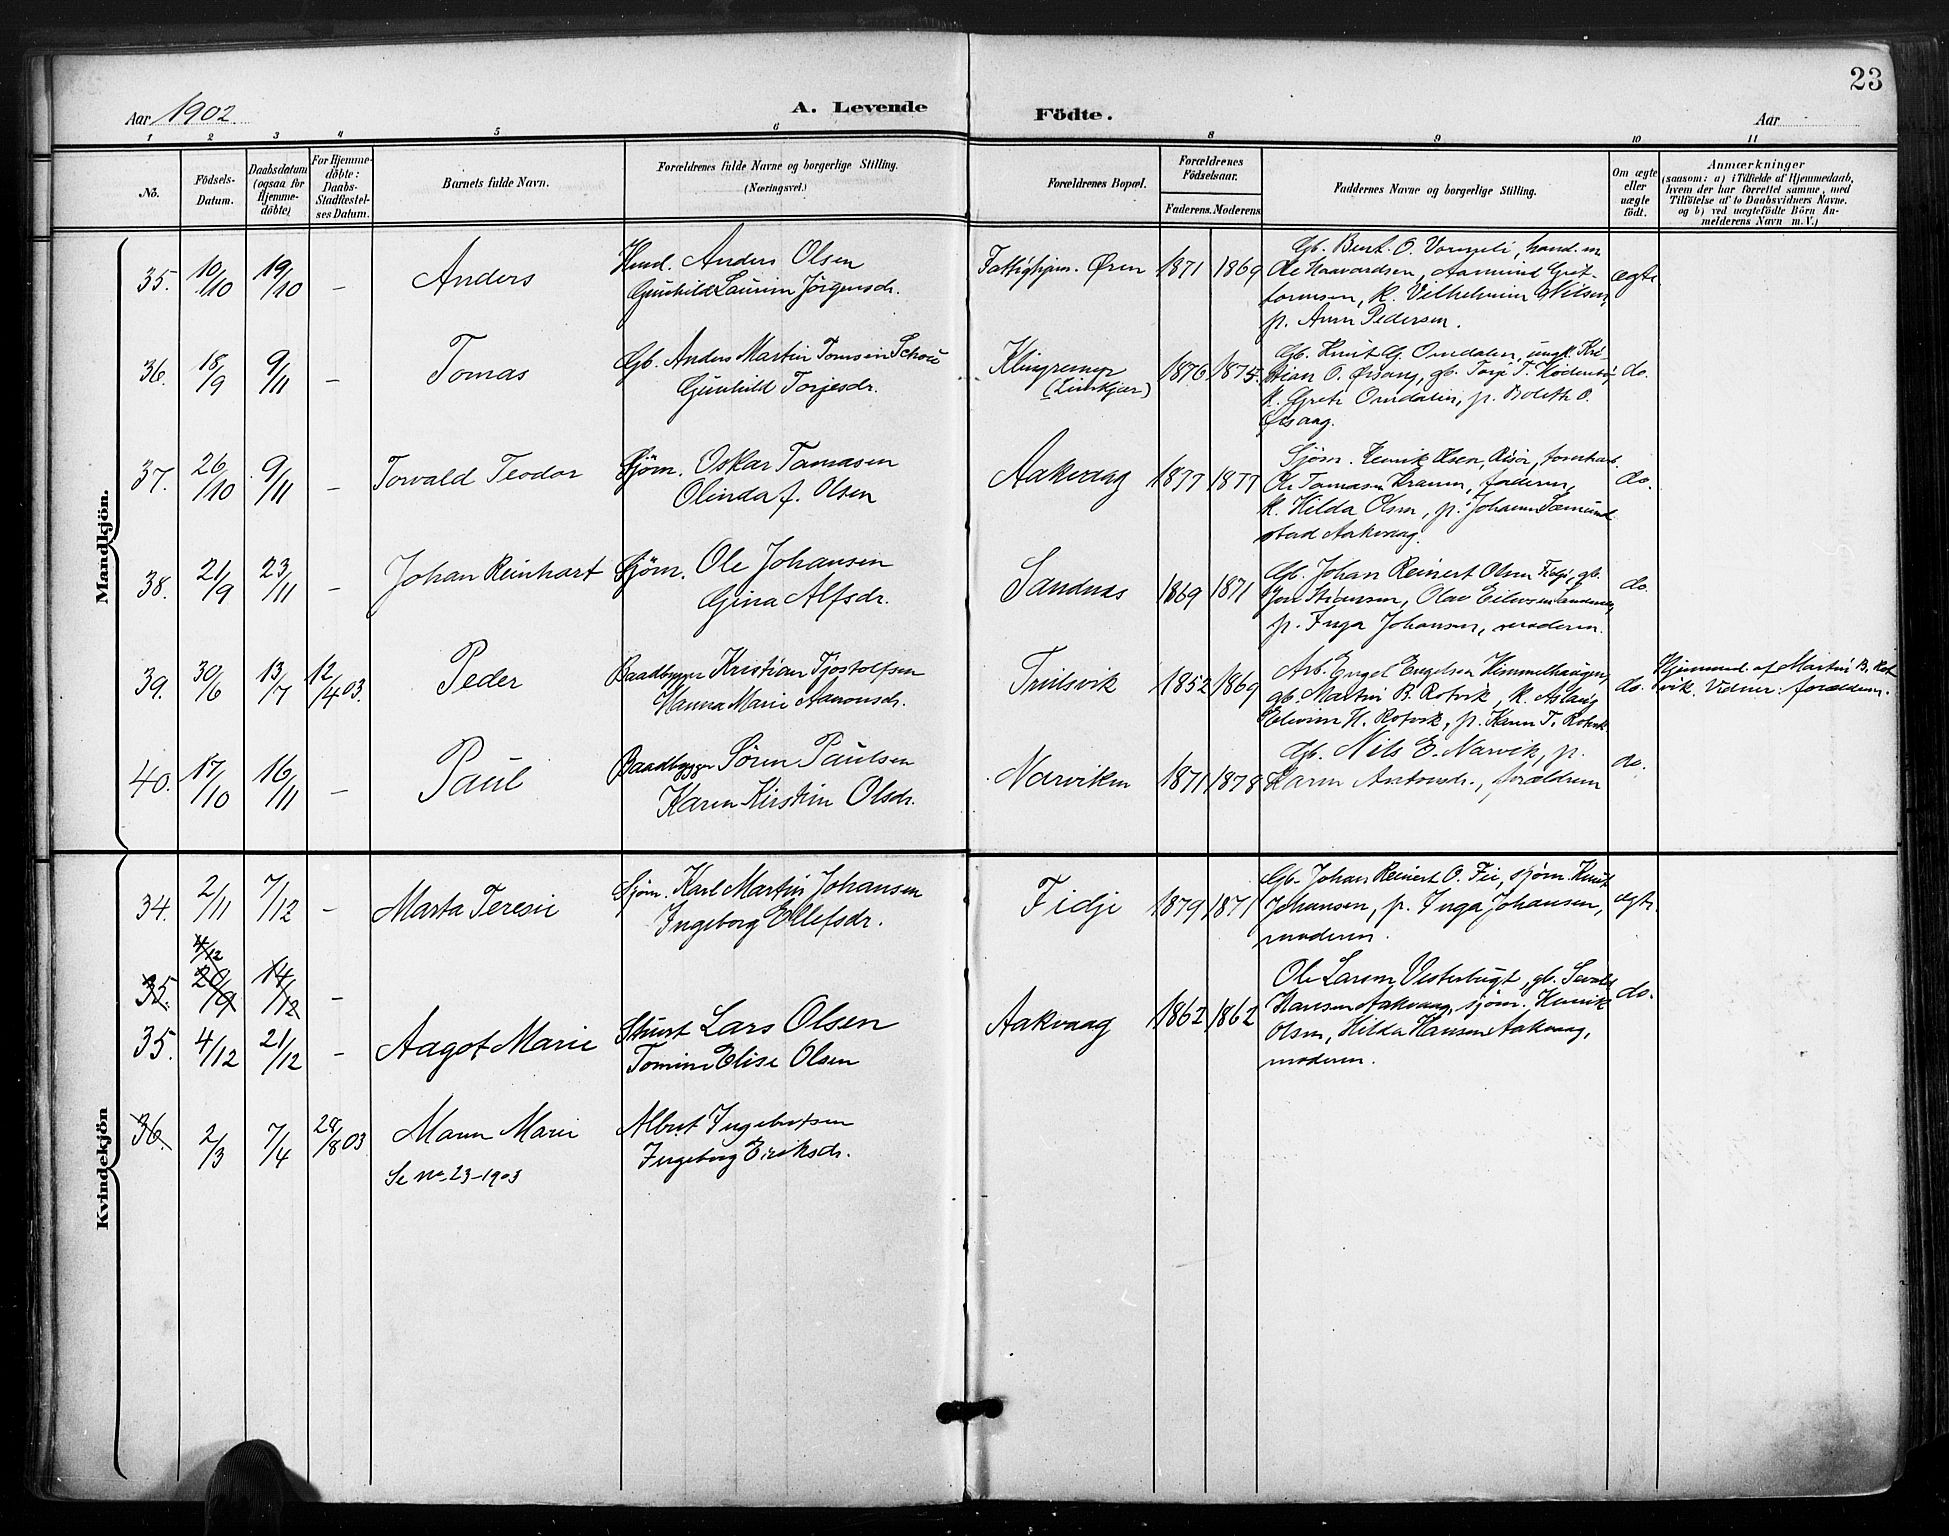 23
Aar 1902.
A. Levende Födte.
Aar
1 2 3 4 5 6 8 9 10 11
No.
Födsels-Datum.
Daabsdatum (ogsaa for Hjemmedöbte)
For Hjemmedöbte: Daabs-Stadfæstelses Datum.
Barnets fulde Navn.
Forældrenes fulde Navne og borgerlige Stilling.
(Næringsvei.)
Forældrenes Bopæl.
Forældrenes Födselsaar.
Faderens. Moderens.
Faddernes Navne og borgerlige Stilling.
Om ægte eller uægte födt.
Anmærkninger
(saasom: a) i Tilfælde af Hjemmedaab,
hvem der har forrettet samme, med
Tilföielse af to Daabsvidners Navne.
og b) ved uægtefödte Börn An-
melderens Navn m. V.)
Mandkjön.
35. 10/10 19/10 – Anders
Anders Olsen
Gunhild Laurine Jörgensdr.
Fattighjem. Øren 1871 1869
Ole Haavardsen, Aamund
K. Vilhelmine Nilsen,
p. Anne Pedersen.
ægte
36. 18/9 9/11 – Tomas
Gb. Anders Martin Tomsen
Gunhild Torjesdr.
1876 1875.
Gb. Knut G. Omdalen, ungk. Kri-
stian O. Ørsang, gb. Torje T.
K. Grete Omdalen, p. Bolette O.
do.
37. 26/10 9/11 – Torvald Teodor
Sjöm. Oskar Tomasen
Olinda f. Olsen
Aakvaag 1877 1877
Sjöm. Henrik Olsen, Risör,
Ole Tomasen faderen,
K. Hilda Olsen, p. Johanne
Aakvaag.
do.
38. 21/9 23/11 – Johan Reinhart
Sjöm. Ole Johansen
Gina Alfsdr.
Sandnes 1869 1871
Gb. Johan Reinert Olsen Fidje, gb.
Olav Eilevsen Sandnes,
p. Inga Johansen, moderen.
do.
39. 30/6 13/7 12/4 03. Peder
Baadbygger Kristian Tjostolfsen
Hanna Marie Aanonsdr.
1852 1869
Arb. Engel Engelsen Himmelhaugen,
gb. Martin B. Rotvik, K. Aslaug
H. Rotvik, p. Karen T. Rotvik
do.
Hjemmed. af Martin B. Rot-
vik. Vidner: forældrene.
40. 17/10 16/11 – Paul
Baadbygger Sören Paulsen
Karen Kirstine Olsdr.
Narviken 1871 1878
Gb. Nils E. Narvik, p.
Karen forældrene
do.
Kvindekjön
34. 2/11 7/12 – Marta Teresie
Sjöm. Karl Martin Johansen
Ingeborg Ellefsdr.
Fidje 1879 1871
Gb. Johan Reinert O. Fie, sjöm. Knut
Johansen, p. Inga Johansen,
moderen.
ægte.
4/12
35. 20/9 14/12 –
35. 4/12 21/12 – Aagot Marie
Lars Olsen
Tomine Elise Olsen
Aakvaag 1862 1862
Ole Larsen Vesterbugt, gb.
Hansen Aakvaag, sjöm. Henrik
Olsen, Hilda Hansen Aakvaag,
moderen.
do.
36. 2/3 7/4 28/8 03 Maren Marie
Albert Ingebretsen
Ingeborg Eriksdr.
Se No. 23–1903